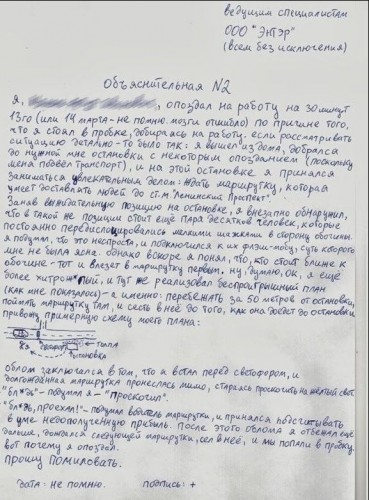 ведущим специалистам
ООО "ЭНТЭР"
(всем без исключения)
Объяснительная №2
Я, , опоздал на работу на 30 минут
13го (или 14 марта - не помню. мозги отшибло) по причине того,
что я стоял в пробке, добираясь на работу. если рассматривать
ситуацию детально - то было так: я вышел из дома, добрался
до нужной мне остановки с некоторым опозданием (поскольку
меня подвёл транспорт), и на этой остановке я принялся
заниматься увлекательным делом: ждать маршрутку, которая
умеет доставлять людей до ст.м "Ленинский Проспект".
Заняв выжидательную позицию на остановке, я внезапно обнаружил,
что в такой же позиции стоит ещё пара десятков человек, которые
постоянно передислоцировались мелкими шажками в сторону обочины.
я подумал, что это неспроста, и подключился к их флэш-мобу, суть которого
мне не была ясна. однако вскоре я понял, что кто стоит ближе к
обочине - тот и влезет в маршрутку первым. ну, думаю, ок, я ещё
более хитрож*пый, и тут же реализовал беспроигрышный план
(как мне показалось) - а именно: перебежать за 50 метров от остановки,
поймать маршрутку там, и сесть в неё до того, как она доедет до остановки
привожу примерную схему моего плана:
Я толпа
остановка
облом заключался в том, что я встал перед светофором, и
долгожданная маршрутка пронеслась мимо, стараясь проскочить на жёлтый свет.
"бл*дь" - подумал я - "проскочил".
"бл*дь, проехал!" - подумал водитель маршрутки, и принялся подсчитывать
в уме недополученную прибыль. После этого облома я отбежал ещё
дальше, дождался следующей маршрутки, сел в неё, и мы попали в пробку.
вот почему я опоздал.
прошу помиловать.
дата: не помню. подпись: +